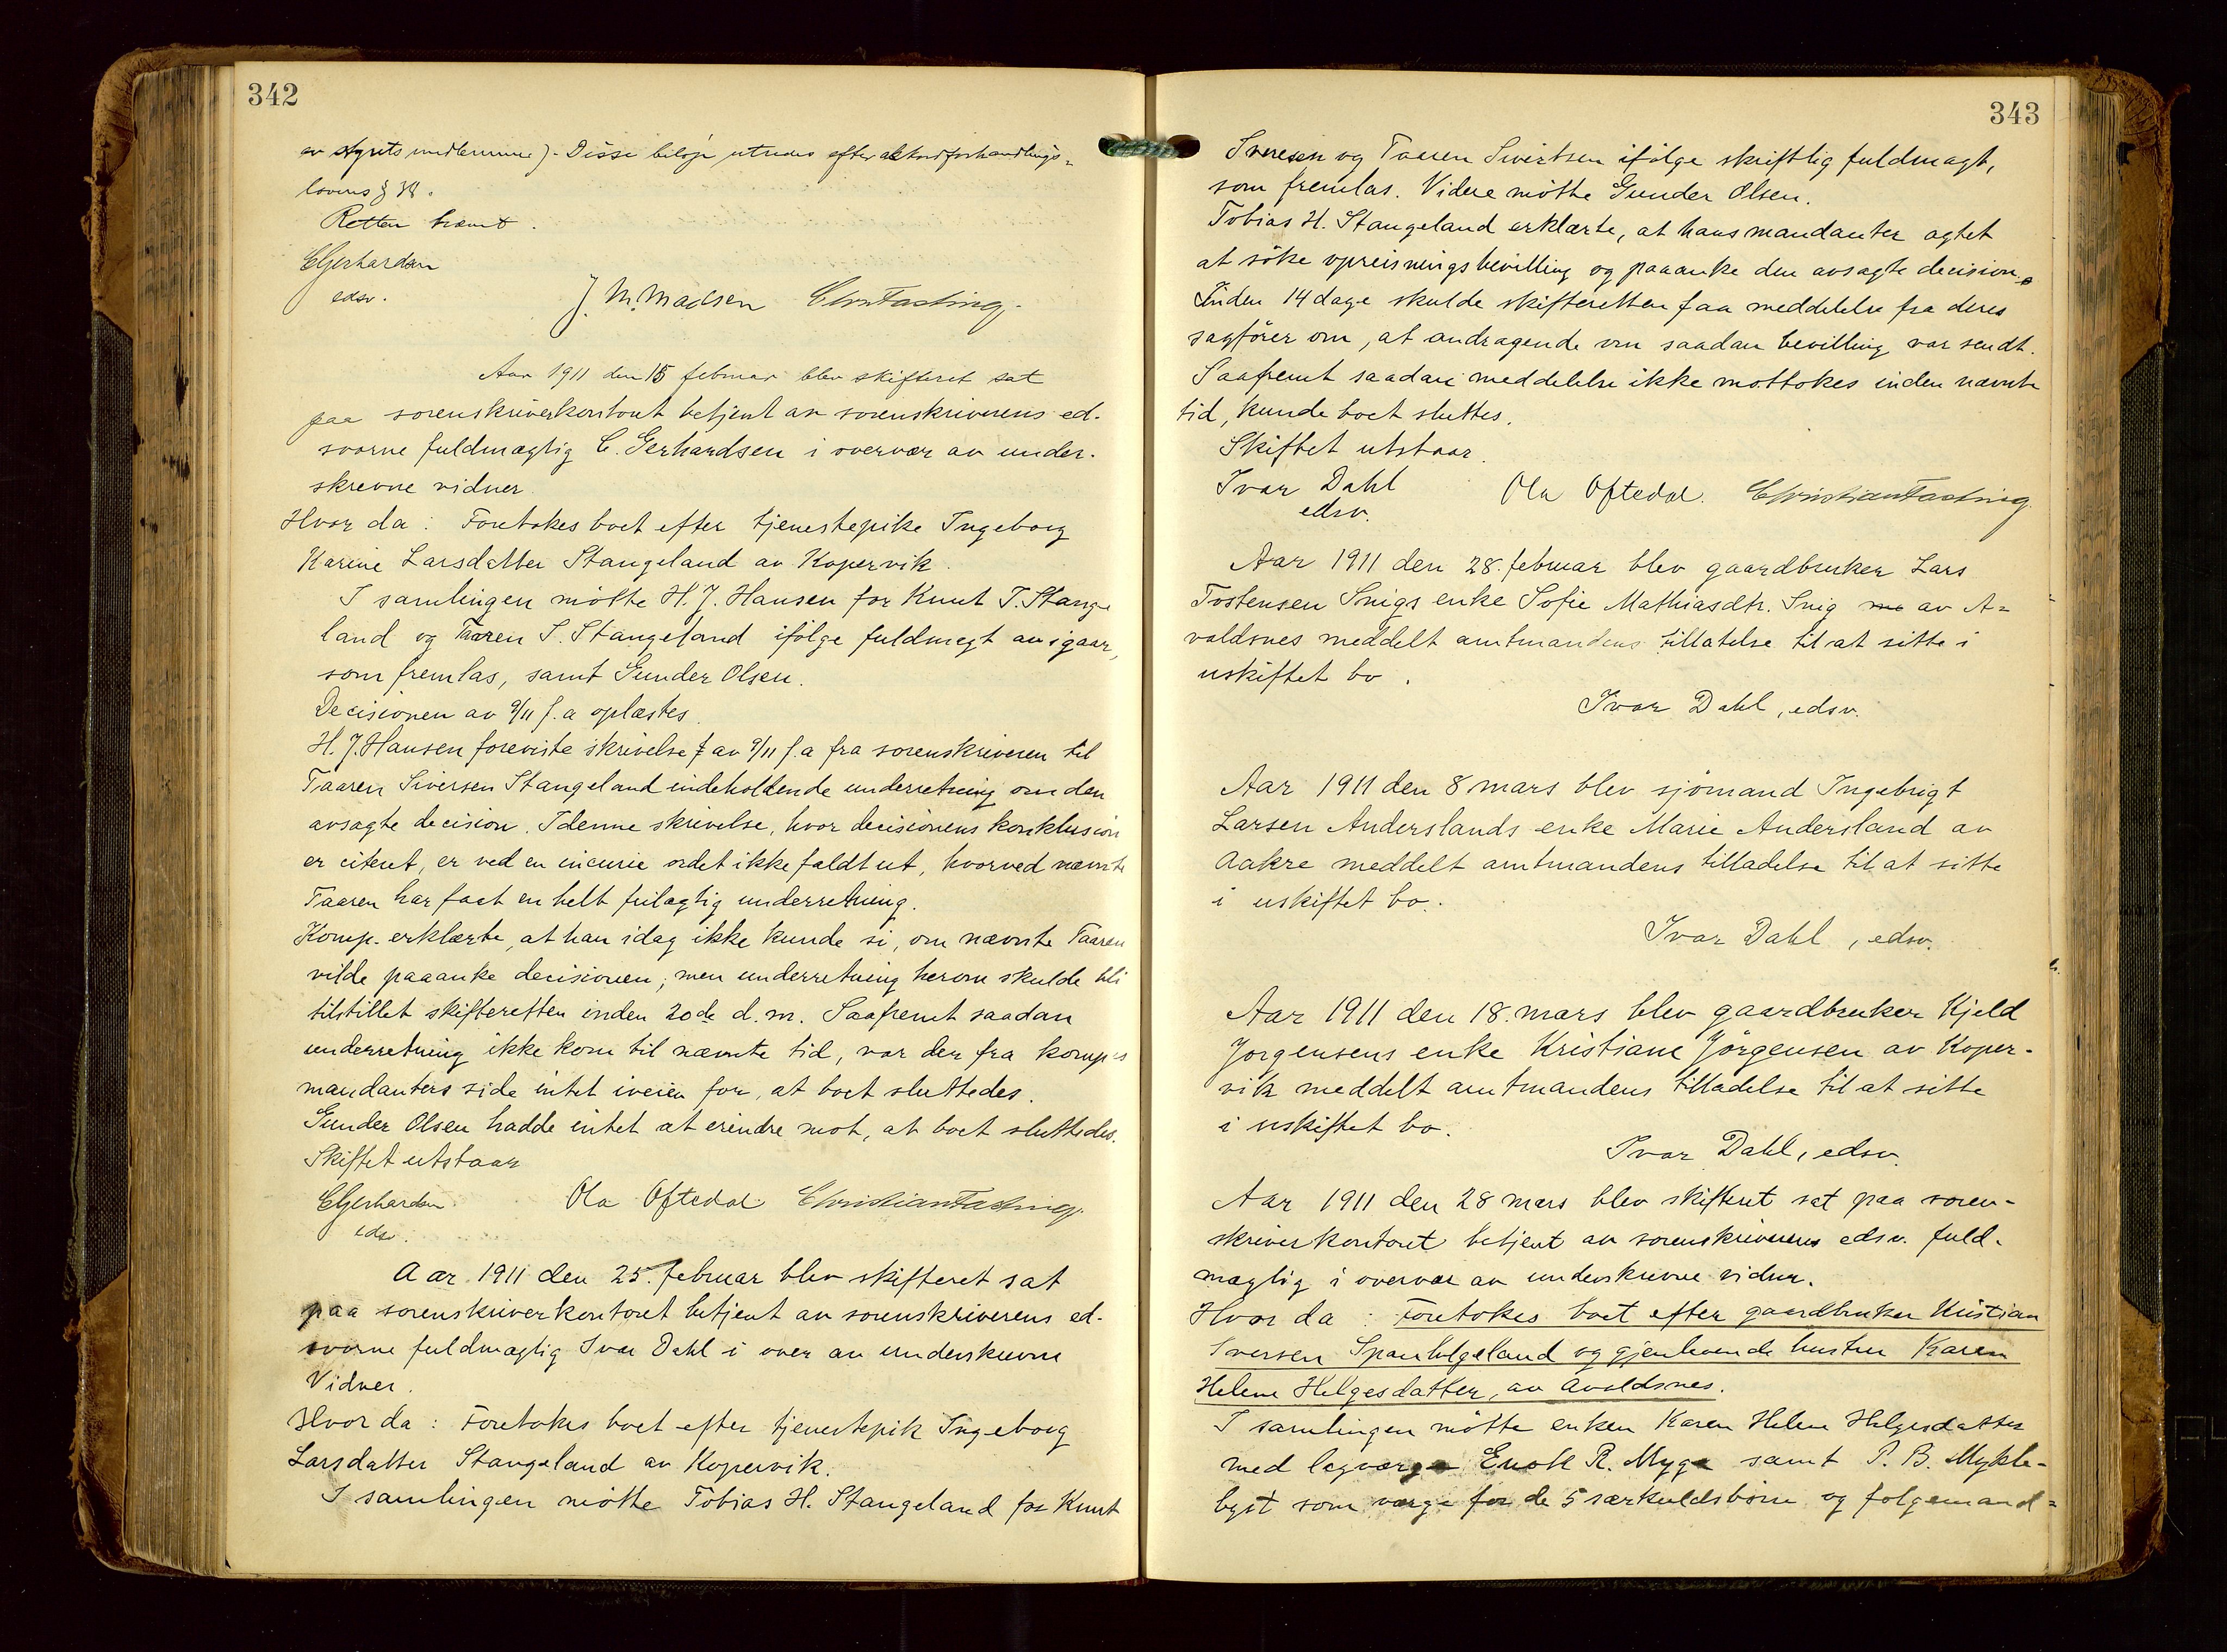 342
av styrets medlemmer). Disse beløp utredes efter akkordforhandlings-
lovens §
Retten hævet.
CGerhardsen
edsv.
J. M. Madsen Chr. Fasting.
Aar 1911 den 15 februar blev skifteret sat
paa sorenskriverkontoret betjent av sorenskriverens ed-
svorne fuldmægtig C. Gerhardsen i overvær av under-
skrevne vidner.
Hvor da: Foretokes boet efter tjenestepike Ingeborg
Karine Larsdatter Stangeland av Kopervik.
I samlingen møtte H. J. Hansen for Knut T. Stange
land og Taaren S. Stangeland ifølge fuldmegt av igaar,
som fremlas, samt Gunder Olsen.
Decisionen av 9/11 f.a oplæstes.
H. J. Hansen foreviste skrivelse av 9/11 f.a fra sorenskriveren til
Taaren Siversen Stangeland indeholdende underretning om den
avsagte decision. I denne skrivelse, hvor decisionens konklusion
er citeret, er ved en incurie ordet ikke faldt ut, hvorved nævnte
Taaren har faat en helt feilagtig underretning.
Komp. erklærte, at han idag ikke kunde si, om nævnte Taaren
vilde paaanke decisionen; men underretning herom skulde bli
tilstillet skifteretten inden 20de d.m. Saafremt saadan
underretning ikke kom til nævnte tid, var der fra komp's
mandanters side intet iveien for, at boet sluttedes.
Gunder Olsen hadde intet at erindre mot, at boet sluttedes.
Skiftet utstaar
CGerhardsen Ola Oftedal Christian Fasting.
edsv.
Aar 1911 den 25. februar blev skifteret sat
paa sorenskriverkontoret betjent av sorenskriverens ed-
svorne fuldmægtig Ivar Dahl i over av underskrevne
Vidner.
Hvor da: Foretokes boet efter tjenestepik Ingeborg
Larsdatter Stangeland av Kopervik.
I samlingen møtte Tobias H. Stangeland for Knut
343
Sveresen og Taaren Sivertsen ifølge skriftlig fuldmagt,
som fremlas. Videre møtte Gunder Olsen.
Tobias H. Stangeland erklærte, at hans mandanter agtet
at søke opreisningsbevilling og paaanke den avsagte decision.
Inden 14 dage skulde skifteretten faa meddelelse fra deres
sagfører om, at andragende om saadan bevilling var sendt.
Saafremt saadan meddelelse ikke mottokes inden nævnte
tid, kunde boet sluttes.
Skiftet utstaar.
Ivar Dahl Ola Oftedal. Christian Fasting.
edsv.
Aar 1911 den 28. februar blev gaardbruker Lars
Tostensen Snigs enke Sofie Mathiasdtr. Snig me av A-
valdsnes meddelt amtmandens tillatelse til at sitte i
uskiftet bo.
Ivar Dahl, edsv.
Aar 1911 den 8 mars blev sjømand Ingebrigt
Larsen Anderslands enke Marie Andersland av
Aakre meddelt amtmandens tilladelse til at sitte
i uskiftet bo.
Ivar Dahl, edsv.
Aar 1911 den 18. mars blev gaardbruker Kjeld
Jørgensens enke Kristiane Jørgensen av Koper-
vik meddelt amtmandens tilladelse til at sitte
i uskiftet bo.
Ivar Dahl, edsv.
Aar 1911 den 28 mars blev skifteret sat paa soren-
skriverkontoret betjent av sorenskriverens edsv. fuld-
mægtig i overvær av underskrevne vidner.
Hvor da: Foretokes boet efter gaardbruker Kristian
Iversen Spanhelgeland og gjenlevende hustru Karen
Helene Helgesdatter, av Avaldsnes.
I samlingen møtte enken Karen Helene Helgesdatter
med lagværge Enok R. Myge samt P. B. Mykle-
byst som værge for de 5 særkuldsbørn og følgemand-